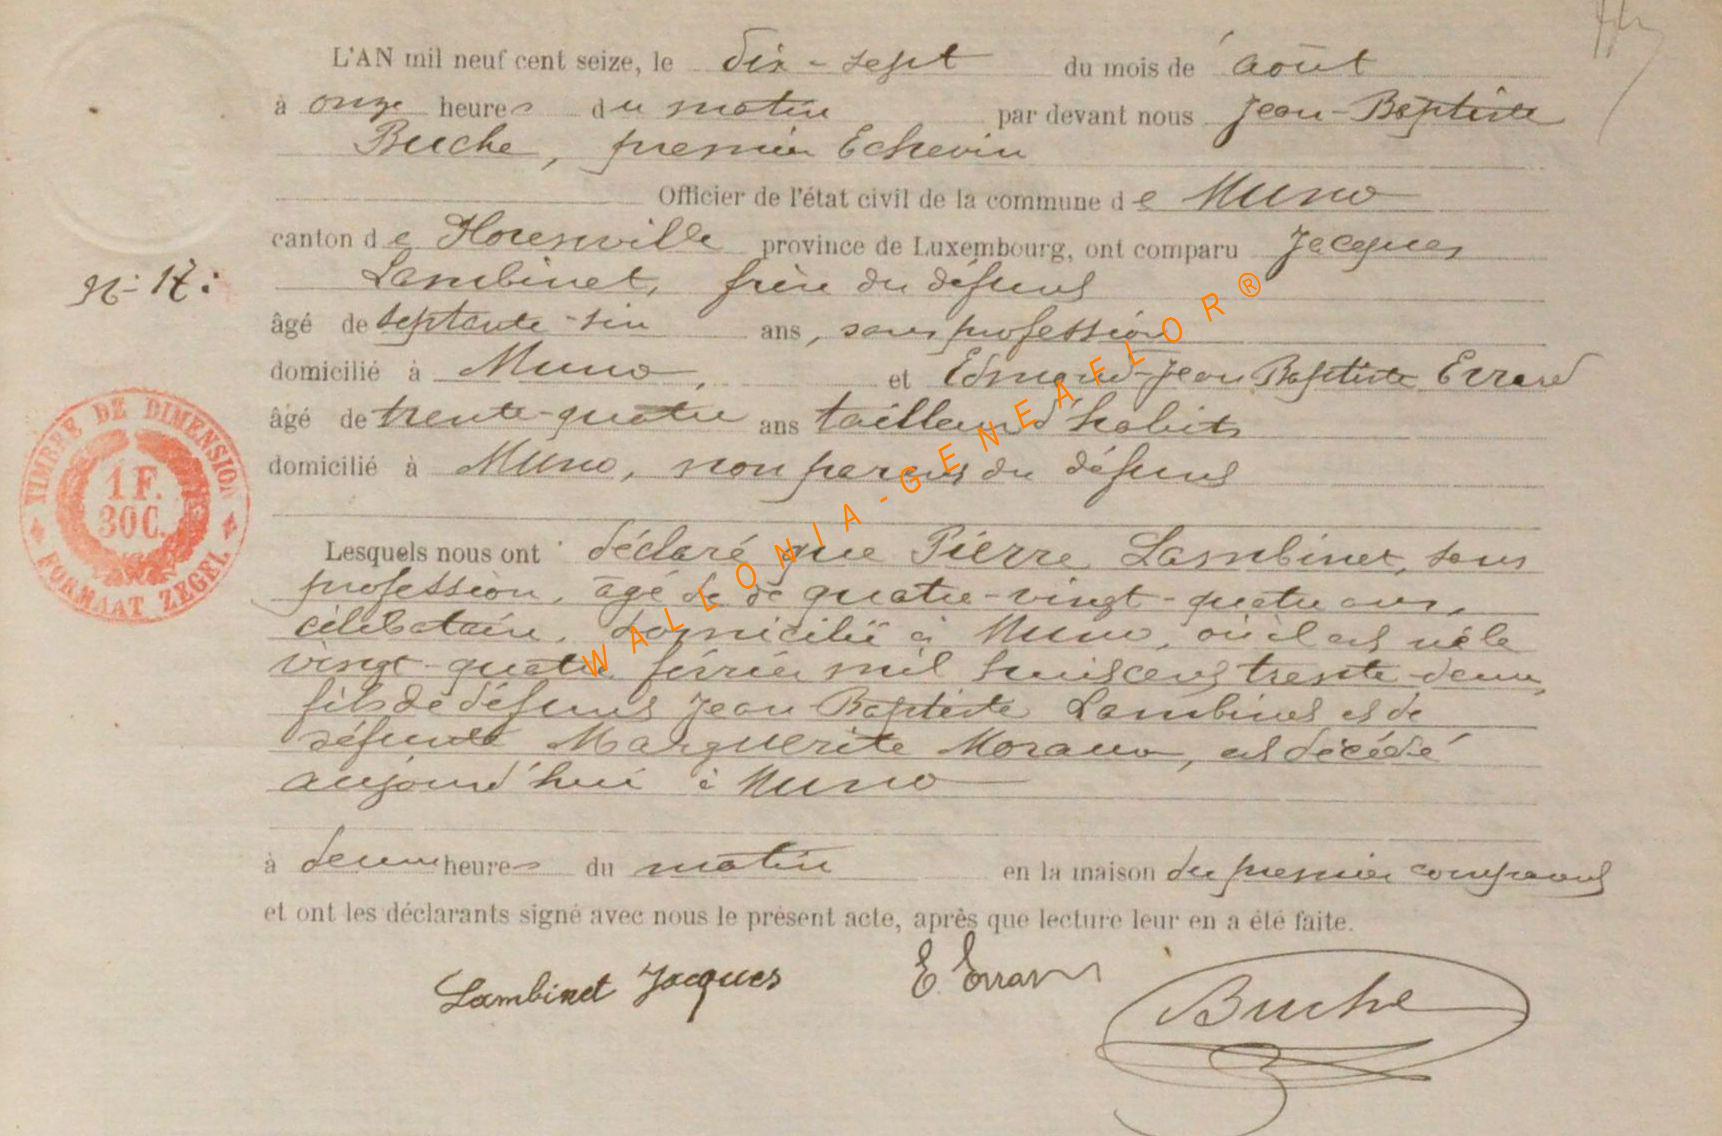 L'AN mil neuf cent seize, le dix-sept du mois de août
à onze heures du matin par devant nous Jean-Baptiste
Buche, premier Echevin
Officier de l'état civil de la commune de Muno
canton de Florenville province de Luxembourg, ont comparu Jacques
Lambinet, frère du défunt
N° 17:
âgé de septante-six ans, sans profession
domicilié à Muno, et Edmond-Jean Baptiste Errard
âgé de trente-quatre ans tailleur d'habits
domicilié à Muno, non parent du défunt
TIMBRE DE DIMENSION
1 F.
30 C.
FORMAAT ZEGEL
Lesquels nous ont déclaré que Pierre Lambinet, sans
profession, âgé de de quatre-vingt-quatre ans,
célibataire, domicilié à Muno, où il est né le
vingt-quatre février mil huit cent trente-deux,
fils de défunt Jean Baptiste Lambinet et de
défunte Marguerite Moraux, est décédé
aujourd'hui à Muno
à deux heures du matin en la maison du premier comparant
et ont les déclarants signé avec nous le présent acte, après que lecture leur en a été faite.
Lambinet Jacques E. Errard Buche
WALLONIA-GENEAFLOR®